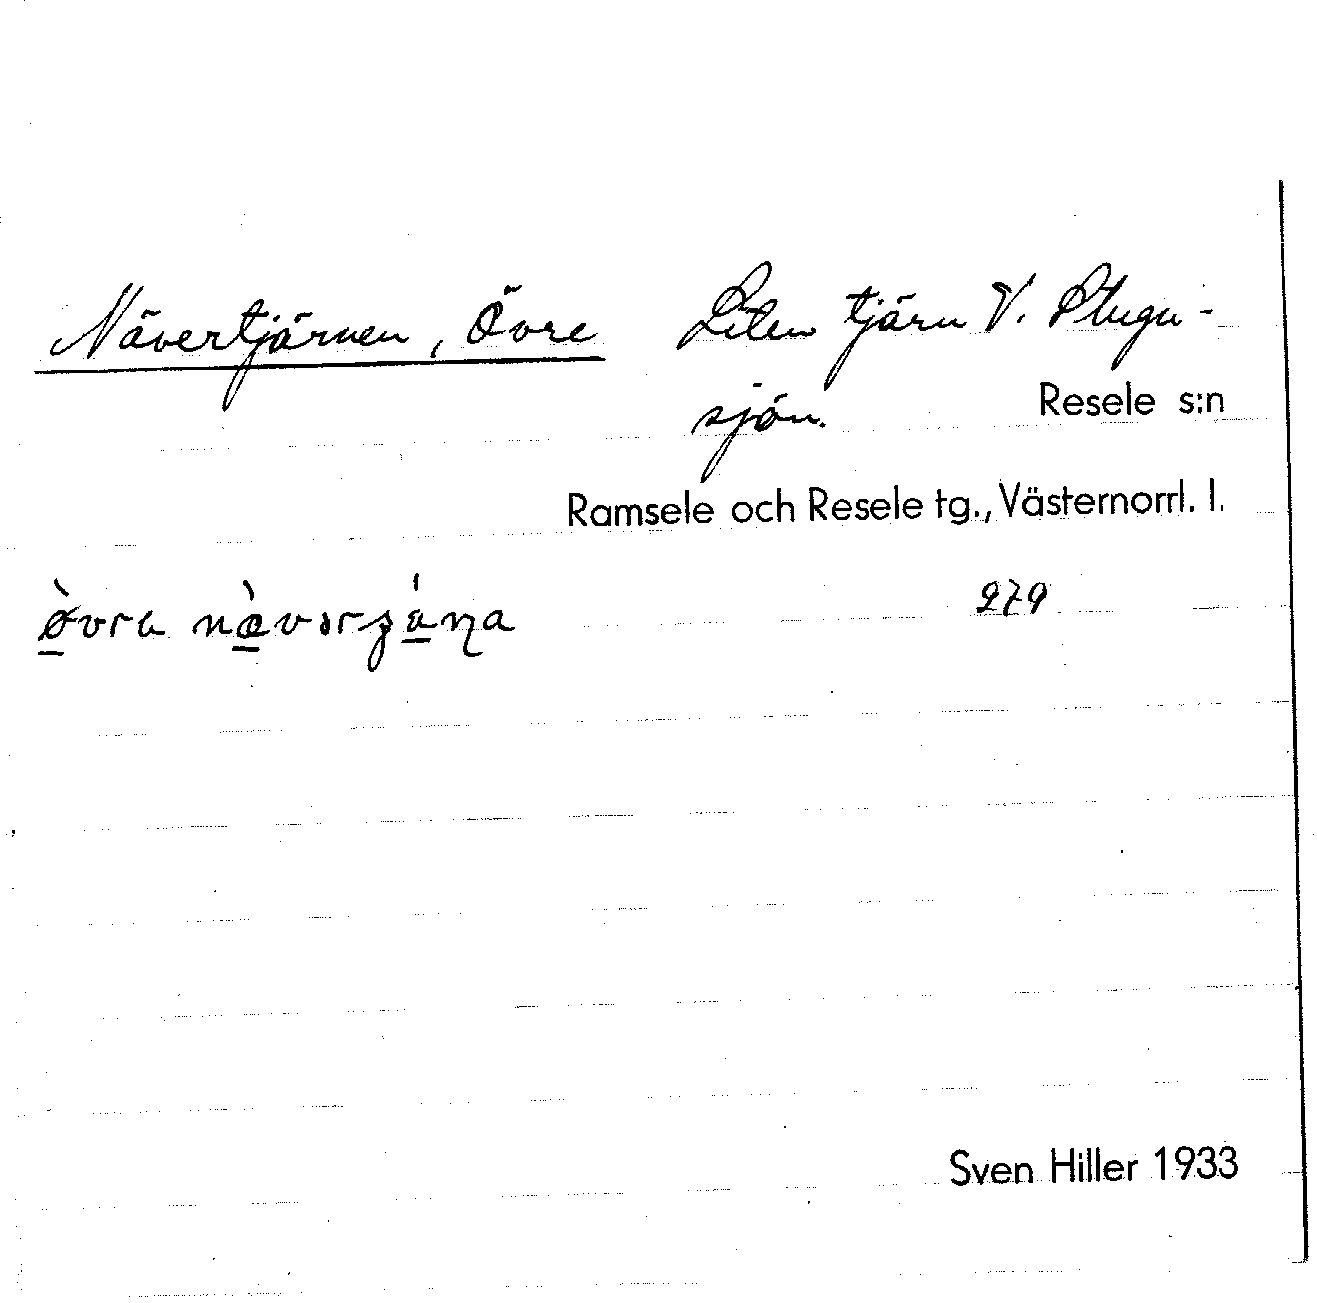 Nävertjärnen, Övre Liten tjärn V. Plugu-
sjön. Resele s:n
Ramsele och Resele tg., Västernorrl. l.
279
Sven Hiller 1933